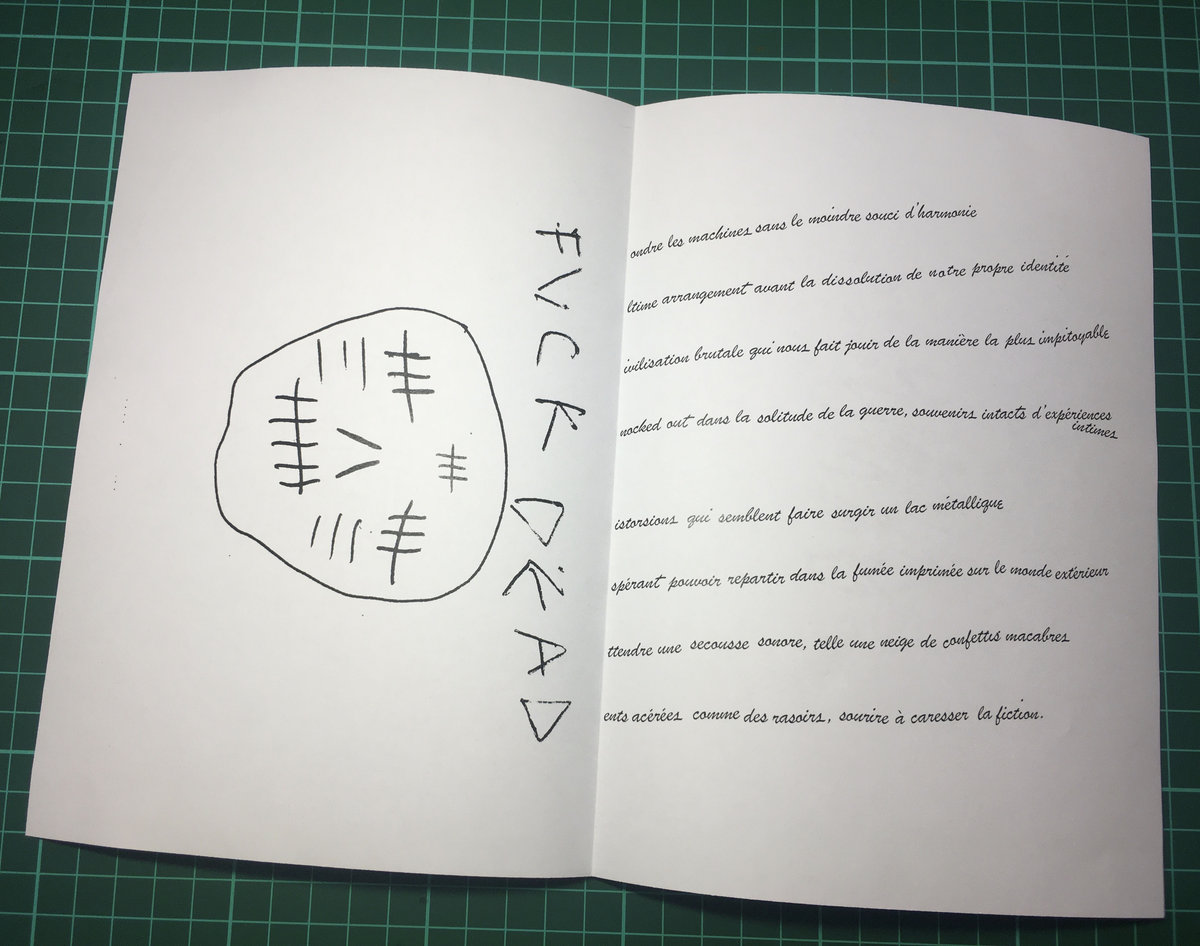 FVCK DËAD
ondre les machines sans le moindre souci d'harmonie
ltime arrangement avant la dissolution de notre propre identité
ivilisation brutale qui nous fait jouir de la manière la plus impitoyable
nocked out dans la solitude de la guerre, souvenirs intacts d'expériences
intimes
istorsions qui semblent faire surgir un lac métallique
spérant pouvoir repartir dans la fumée imprimée sur le monde extérieur
ttendre une secousse sonore, telle une neige de confettis macabres
ents acérées comme des rasoirs, sourire à caresser la fiction.